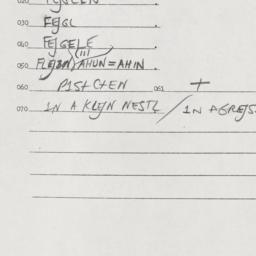 030 FEJGL
040 FEJGELE
(III)
050 FLEJGN, AHUN = AHIN
060 PISTCTEN 061 +
070 IN A KLEJN NESTL / IN AGREJS